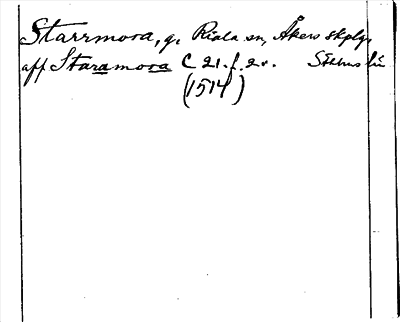 Starrmora, g. Riala sn, Åkers skplg.
aff Staramora C 21. f. 2v. Sthlms län
(1514)